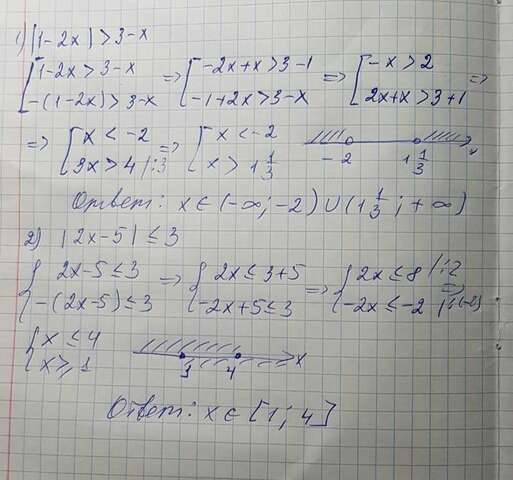 1) |1-2x| > 3-x
[1-2x > 3-x => [-2x+x > 3-1 => [-x > 2 =>
[-(1-2x) > 3-x [-1+2x > 3-x [2x+x > 3+1
=> [x < -2 => [x < -2
[3x > 4 |:3 [x > 1 1/3
-2 1 1/3 x
Ответ: x ∈ (-∞; -2) ∪ (1 1/3; +∞)
2) |2x-5| ≤ 3
{2x-5 ≤ 3 => {2x ≤ 3+5 => {2x ≤ 8 |:2 =>
{-(2x-5) ≤ 3 {-2x+5 ≤ 3 {-2x ≤ -2 |:(-2)
{x ≤ 4
{x ≥ 1
1 4 x
Ответ: x ∈ [1; 4]